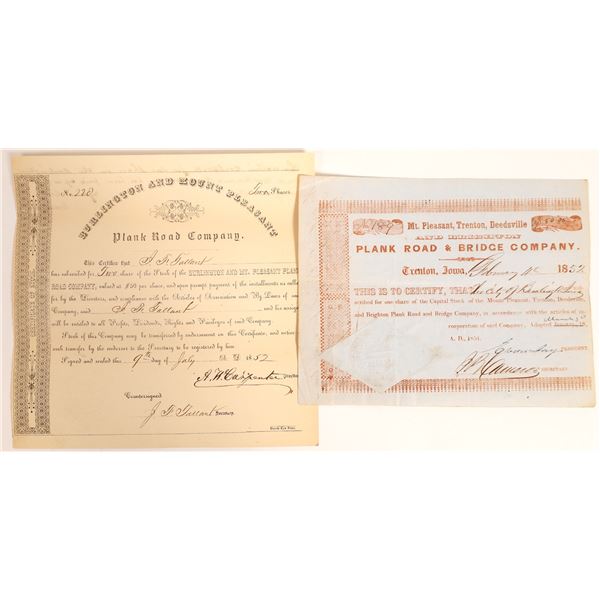 No. 228
Two Shares
BURLINGTON AND MOUNT PLEASANT
Plank Road Company.
This Certifies that J. F. Tallant
has subscribed for Two share of the Stock of the BURLINGTON AND MT. PLEASANT PLANK
ROAD COMPANY, valued at $50 per share, and upon prepayment of the installments as called
for by the Directors, and compliance with the Articles of Association and By Laws of said
Company, said J. F. Tallant and his assigns
will be entitled to all Profits, Dividends, Rights and Privileges of said Company.
not transferable except by indorsement on this Certificate, and
such transfer by the indorsee to the Secretary to be registered by him
Signed and sealed this 9th day of July 1852
A. W. Carpenter
Countersigned
J. F. Tallant
Treasurer
189
Mt. Pleasant, Trenton, Deedsville
AND BRIGHTON
PLANK ROAD & BRIDGE COMPANY.
Trenton, Iowa, February 1852
THIS IS TO CERTIFY, THAT The City of Burlington
scribed for one share of the Capital Stock of the Mount Pleasant, Trenton, Deedsville,
and Brighton Plank Road and Bridge Company, in accordance with the articles of in-
corporation of said Company, Adopted January
A. D., 1851.
PRESIDENT
Cameron
SECRETARY